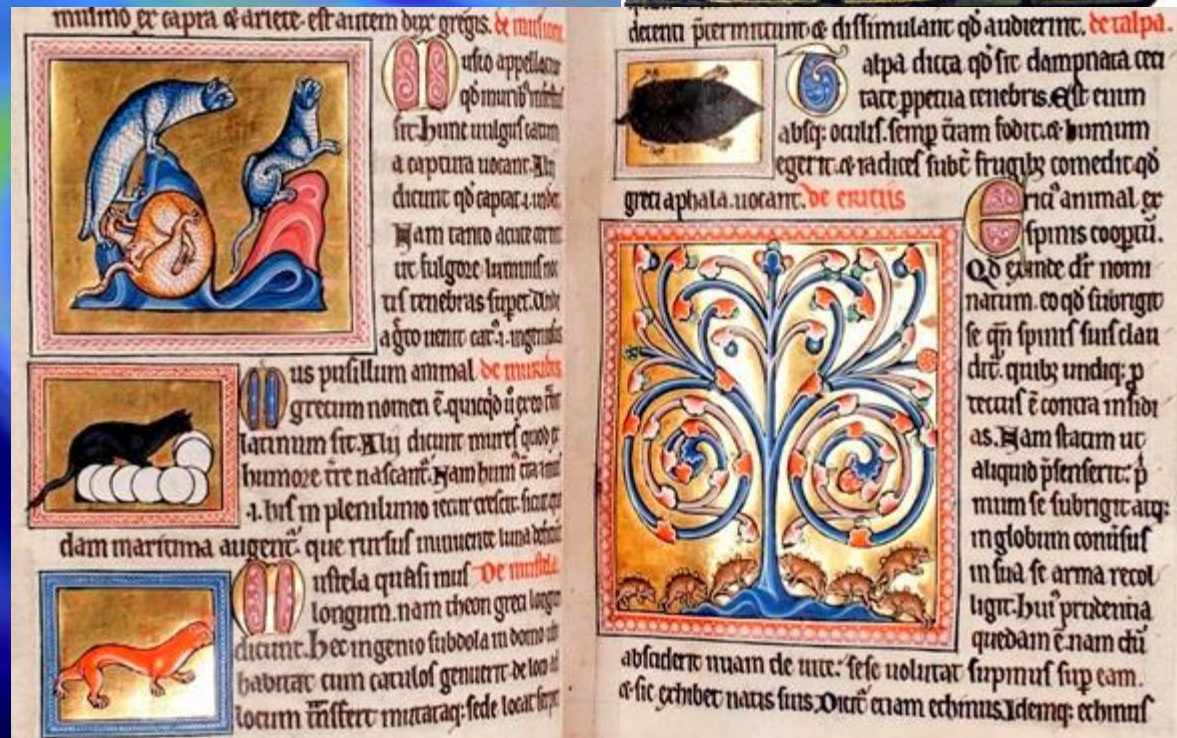 musmo ex capra & ariete. est autem dux gregis. de musione
Musio appellatus
qd muribꝰ infestus
sit. hunc uulgus catum
a captura uocant. Alii
dicunt qd captat .i. uidet
Nam tanto acute cernit
ut fulgore luminis noc
tis tenebras supet. Unde
a gͦco uenit catꝰ .i. ingeniosus
Mus pusillum animal de muribus
grecum nomen ē. quicqd ū ex eo
latinum fit. Alij dicunt mures quod ex
humore tr̄e nascant̄. Nam humꝰ
.i. his in plenilunio iecur crescit. sicut
dam maritima augent̄. que rursus minuente luna
Mustela quasi mus De mustela
longum. nam theon greci longum
dicunt. Hec ingenio subdola in domo ubi
habitat cum catulos genuerit. de loco ad
locum tn̄sfert mutataq; sede locat
dicenti p̄termittunt & dissimulant qd audierint. de talpa.
Talpa dicta qd sit dampnata ceci
tate ppetua tenebris. Est enim
absq; oculis. semp t̄ram fodit. & humum
egerit. & radices subt̄ frugibꝫ comedit qd
greci aphala. uocant. de ericiis
Ericiꝰ animal ex
spinis coopt̄ū.
Qd exinde dr̄ nomi
natum. eo qd subrigit
se qn̄ spinis suis clau
dit̄. quibꝫ undiq; p
tectus ē contra insidi
as. Nam statim ut
aliquid p̄senserit: p̄
mum se subrigit atq;
in globum conūsus
in sua se arma recol
ligit. huiꝰ prudentia
quedam ē. nam dū
absciderit uuam de uite: sese uolutat supinus sup eam.
& sic exhibet natis suis. Dicit̄ etiam echinus. Idemq; echinus